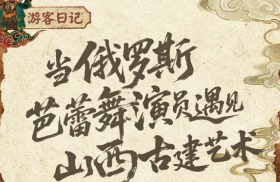 游客日记
当俄罗斯
芭蕾舞演员遇见
山西古建艺术